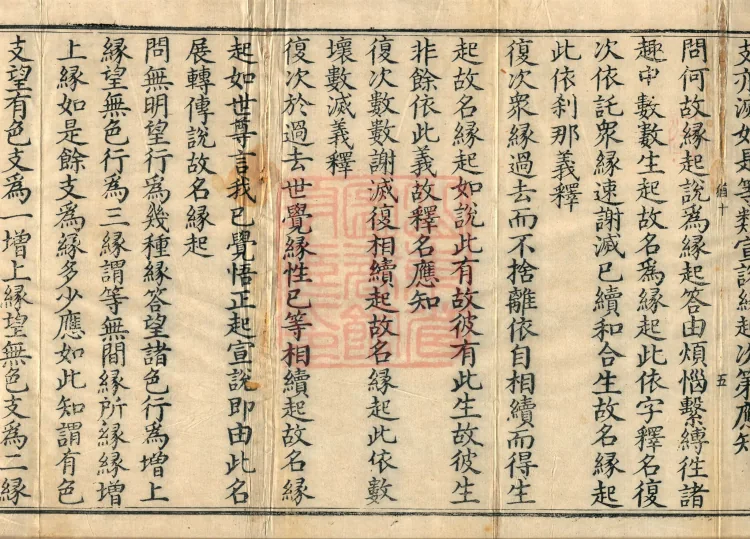 支亦滅如是等類宣説縁起次第應知
組十
五
問何故縁起説為縁起答由煩惱繫縛徃諸
趣中數數生起故名爲縁起此依字釋名復
次依託衆縁速謝滅已續和合生故名縁起
此依刹那義釋
復次衆縁過去而不捨離依自相續而得生
起故名縁起如説此有故彼有此生故彼生
非餘依此義故釋名應知
復次數數謝滅復相續起故名縁起此依數
壞數滅義釋
復次於過去世覺縁性已等相續起故名縁
起如世尊言我已覺悟正起宣説即由此名
展轉傳説故名縁起
問無明望行爲幾種縁答望諸色行為増上
縁望無色行爲三縁謂等無間縁所縁縁増
上縁如是餘支爲縁多少應如此知謂有色
支望有色支爲一増上縁望無色支爲二縁